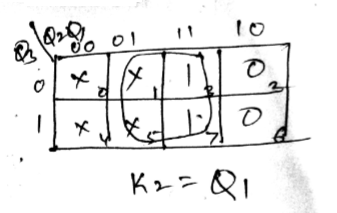 Q3 \ Q2Q1 00 01 11 10
0 x0 x1 1 3 0 2
1 x4 x5 1 7 0 6
K2 = Q1